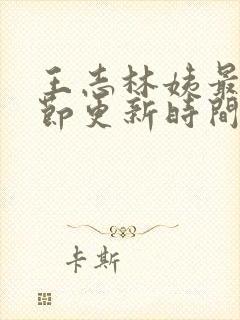 王志林姨最
節更新時間
卡斯